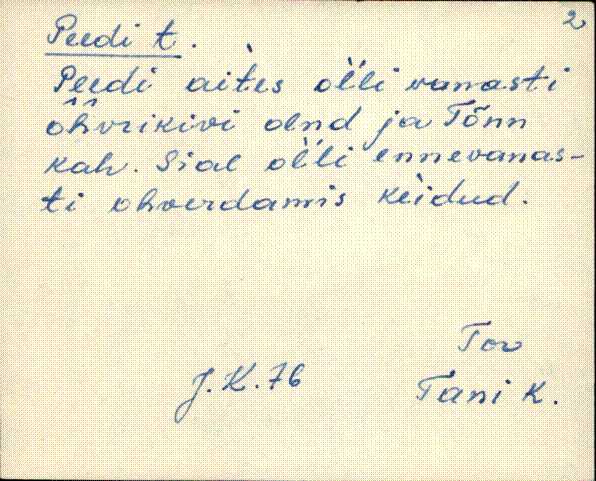 2
Peedi t.
Peedi aites ol̀li vanasti
ohvrikivi olnd ja Tõnn
kah. Sial ol̀li ennevanas-
ti ohverdamis kèidud.
Tor
J.K.76
Tani k.